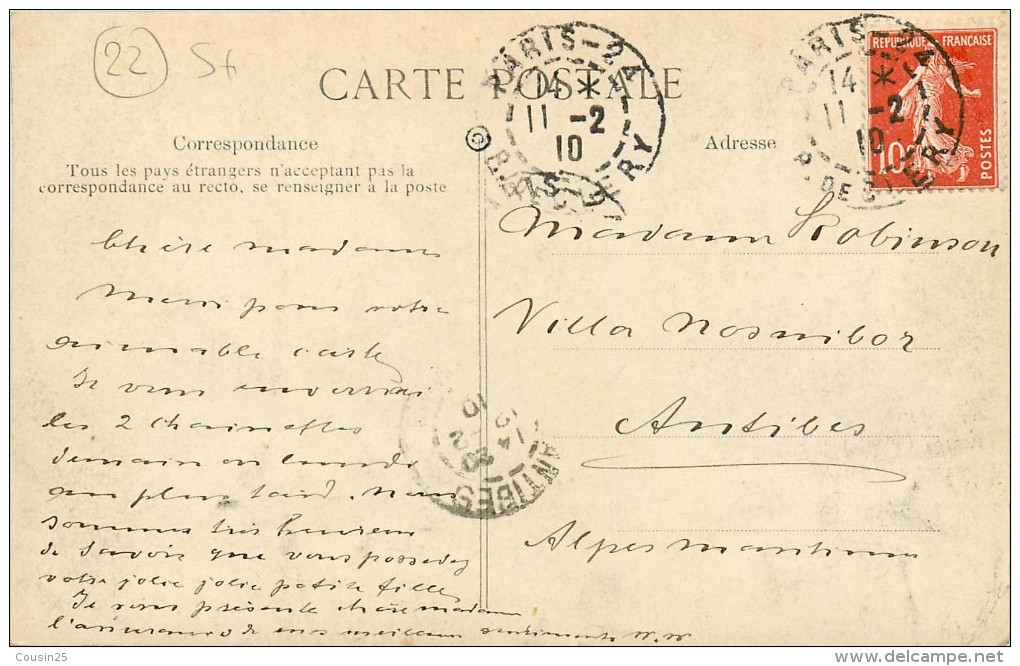 22
CARTE POSTALE
PARIS-24
14 *
11 -2
10
R. DE CLERY
REPUBLIQUE FRANÇAISE
10
POSTES
Correspondance
Adresse
Tous les pays étrangers n'acceptant pas la
correspondance au recto, se renseigner à la poste
Chère madame
Merci pour votre
aimable carte
Je vous enverrai
les 2 Chainettes
demain ou lundi
au plus tard. Nous
sommes très heureux
de savoir que vous possedez
votre jolie jolie petite fille
Je vous présente chère madame
l'assurance de mes meilleurs sentiments
Madame Robinson
Villa Nosnibor
Antibes
Alpes maritimes
ANTIBES
Cousin25
http://www.delcampe.net